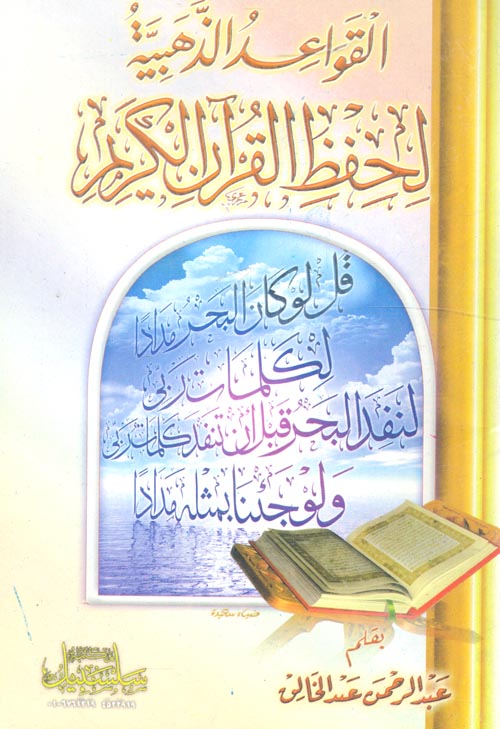 القَوَاعِدُ الذَّهَبِيَّةُ
لِحِفْظِ القُرْآنِ الكَرِيمِ
قل لو كان البحر مدادًا
لكلمات ربي
لنفد البحر قبل أن تنفد كلمات ربي
ولو جئنا بمثله مدادًا
بقلم
عبد الرحمن عبد الخالق
سلسبيل